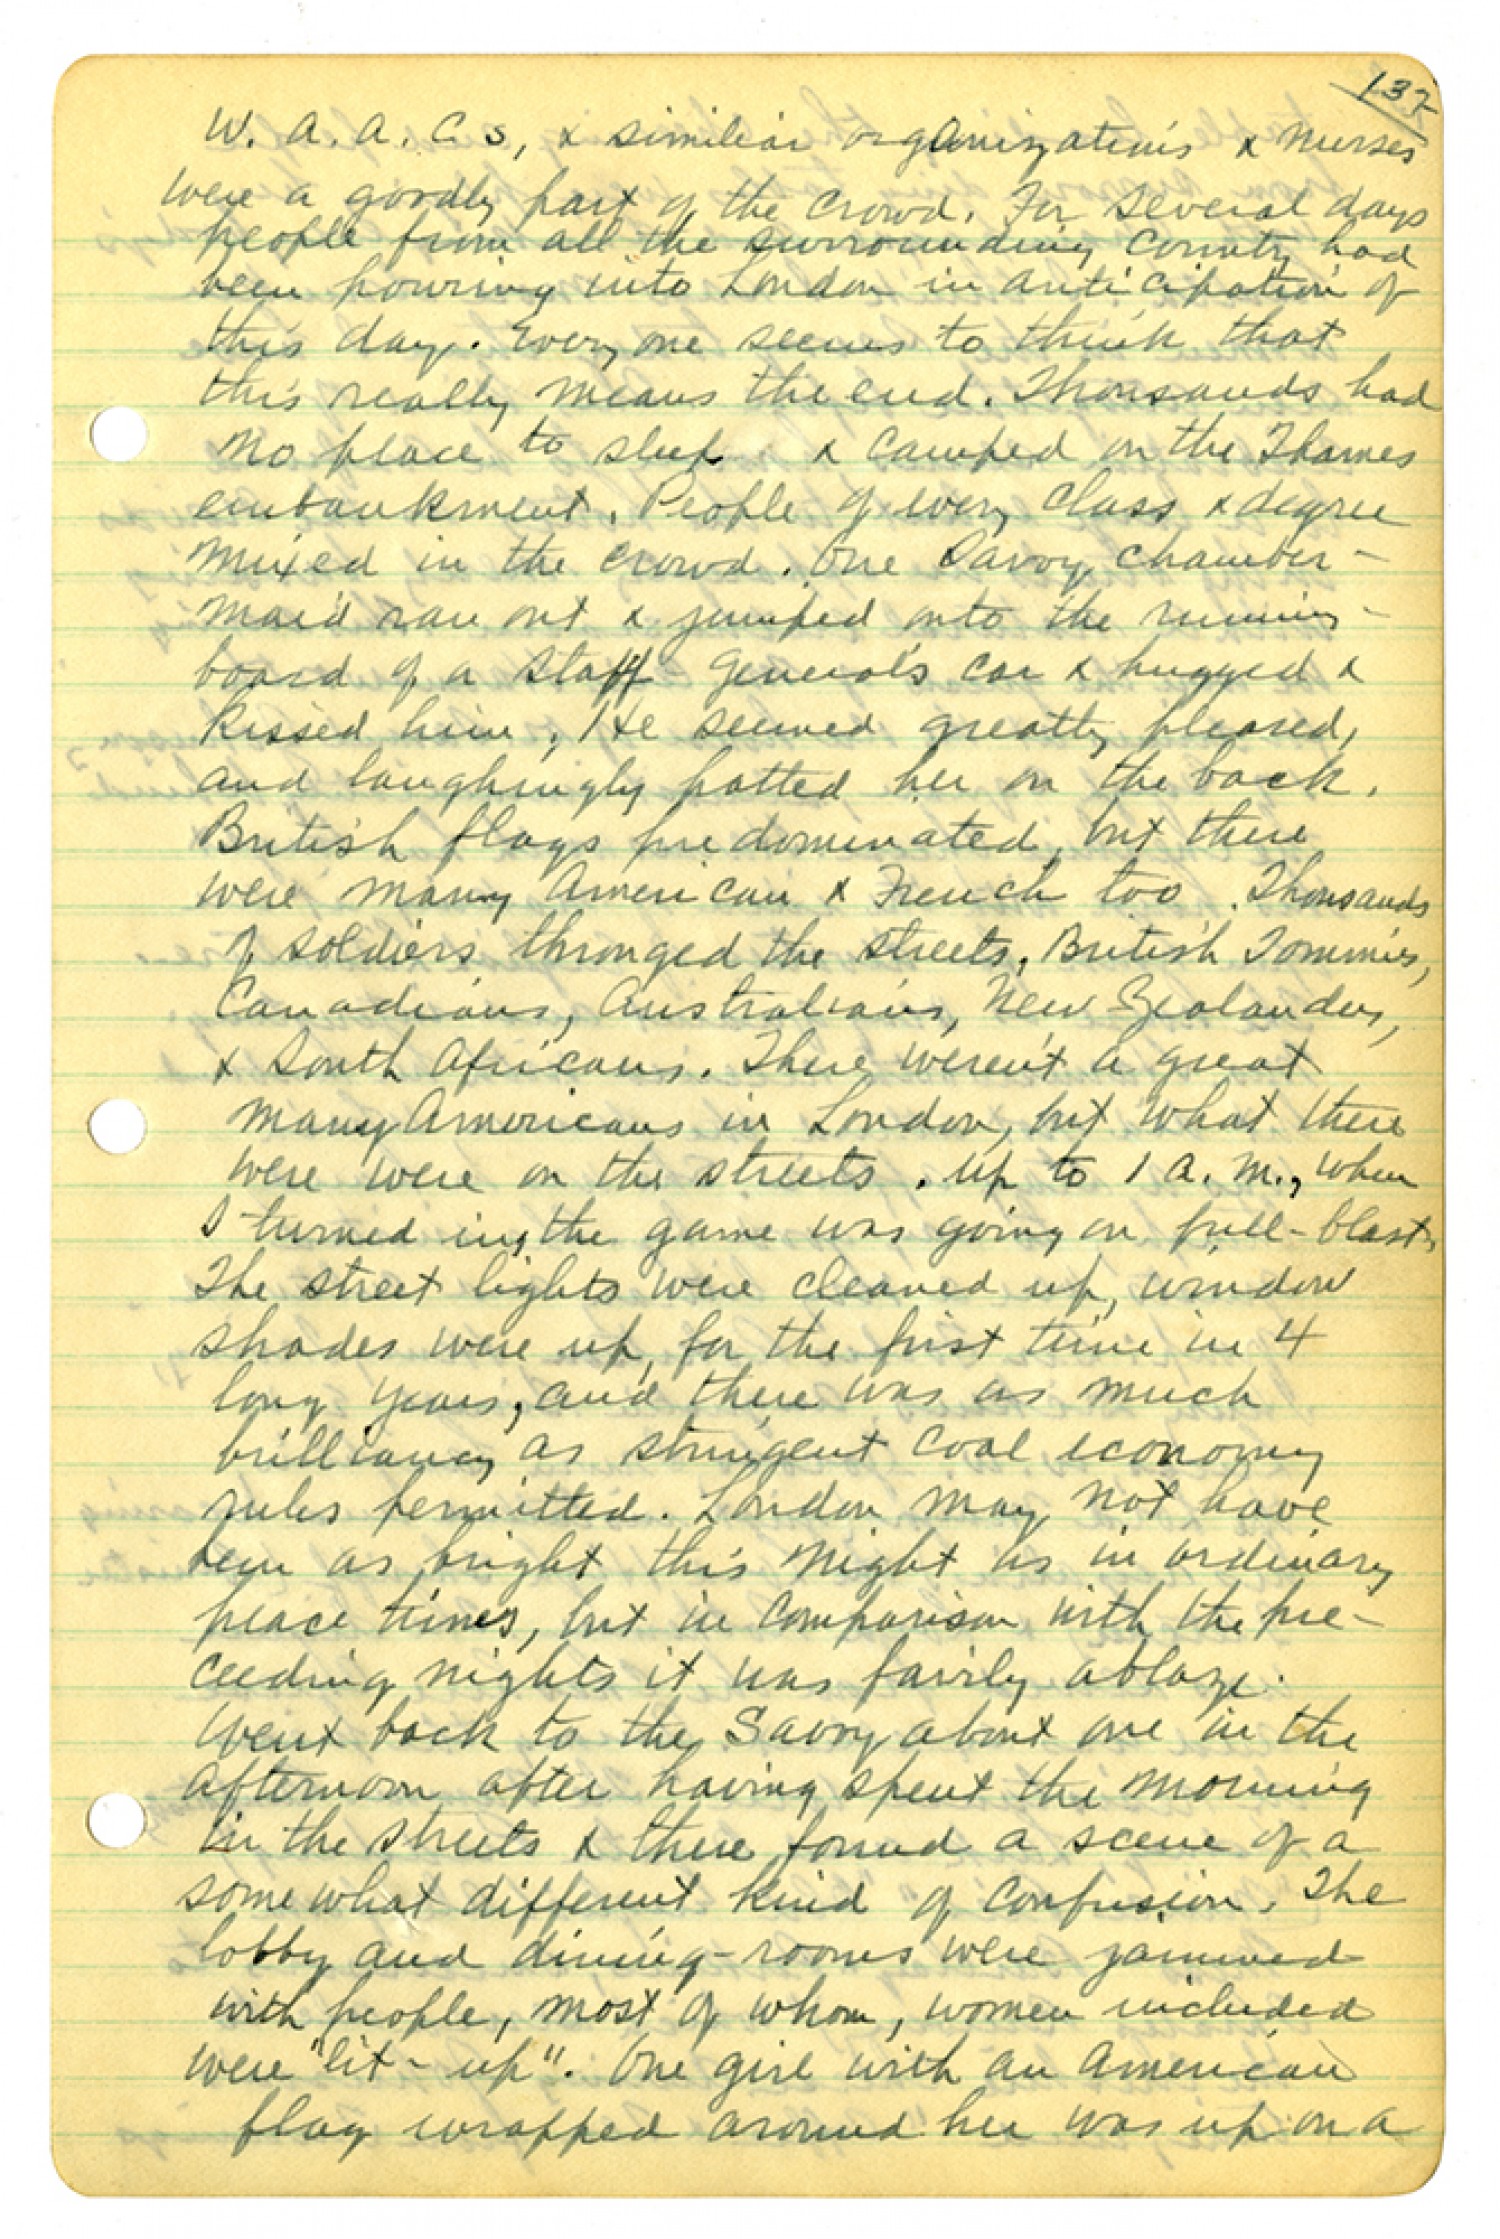 137
W. A. A. C. s, & similiar organizations & nurses
were a goodly part of the crowd. For several days
people from all the surrounding country had
been pouring into London in anticipation of
this day. Everyone seems to think that
this really means the end. Thousands had
no place to sleep & camped on the Thames
embankment. People of every class & degree
mixed in the crowd. One Savoy chamber-
maid ran out & jumped onto the running-
board of a staff General's car & hugged &
kissed him. He seemed greatly pleased,
and laughingly patted her on the back.
British flags predominated, but there
were many American & French too. Thousands
of soldiers thronged the streets, British Tommies,
Canadians, Australians, New Zealanders,
& South Africans. There weren't a great
many Americans in London, but what there
were were on the streets. Up to 1 a. m., when
I turned in, the game was going on full-blast.
The street lights were cleaned up, window
shades were up, for the first time in 4
long years, and there was as much
brilliancy as stringent coal economy
rules permitted. London may not have
been as bright this night as in ordinary
peace times, but in comparison with the pre-
ceeding nights it was fairily ablaze.
Went back to the Savoy about one in the
afternoon after having spent the morning
in the streets & there found a scene of a
somewhat different kind of confusion. The
lobby and dining-rooms were jammed
with people, most of whom, women included
were "lit-up". One girl with an American
flag wrapped around her was up on a